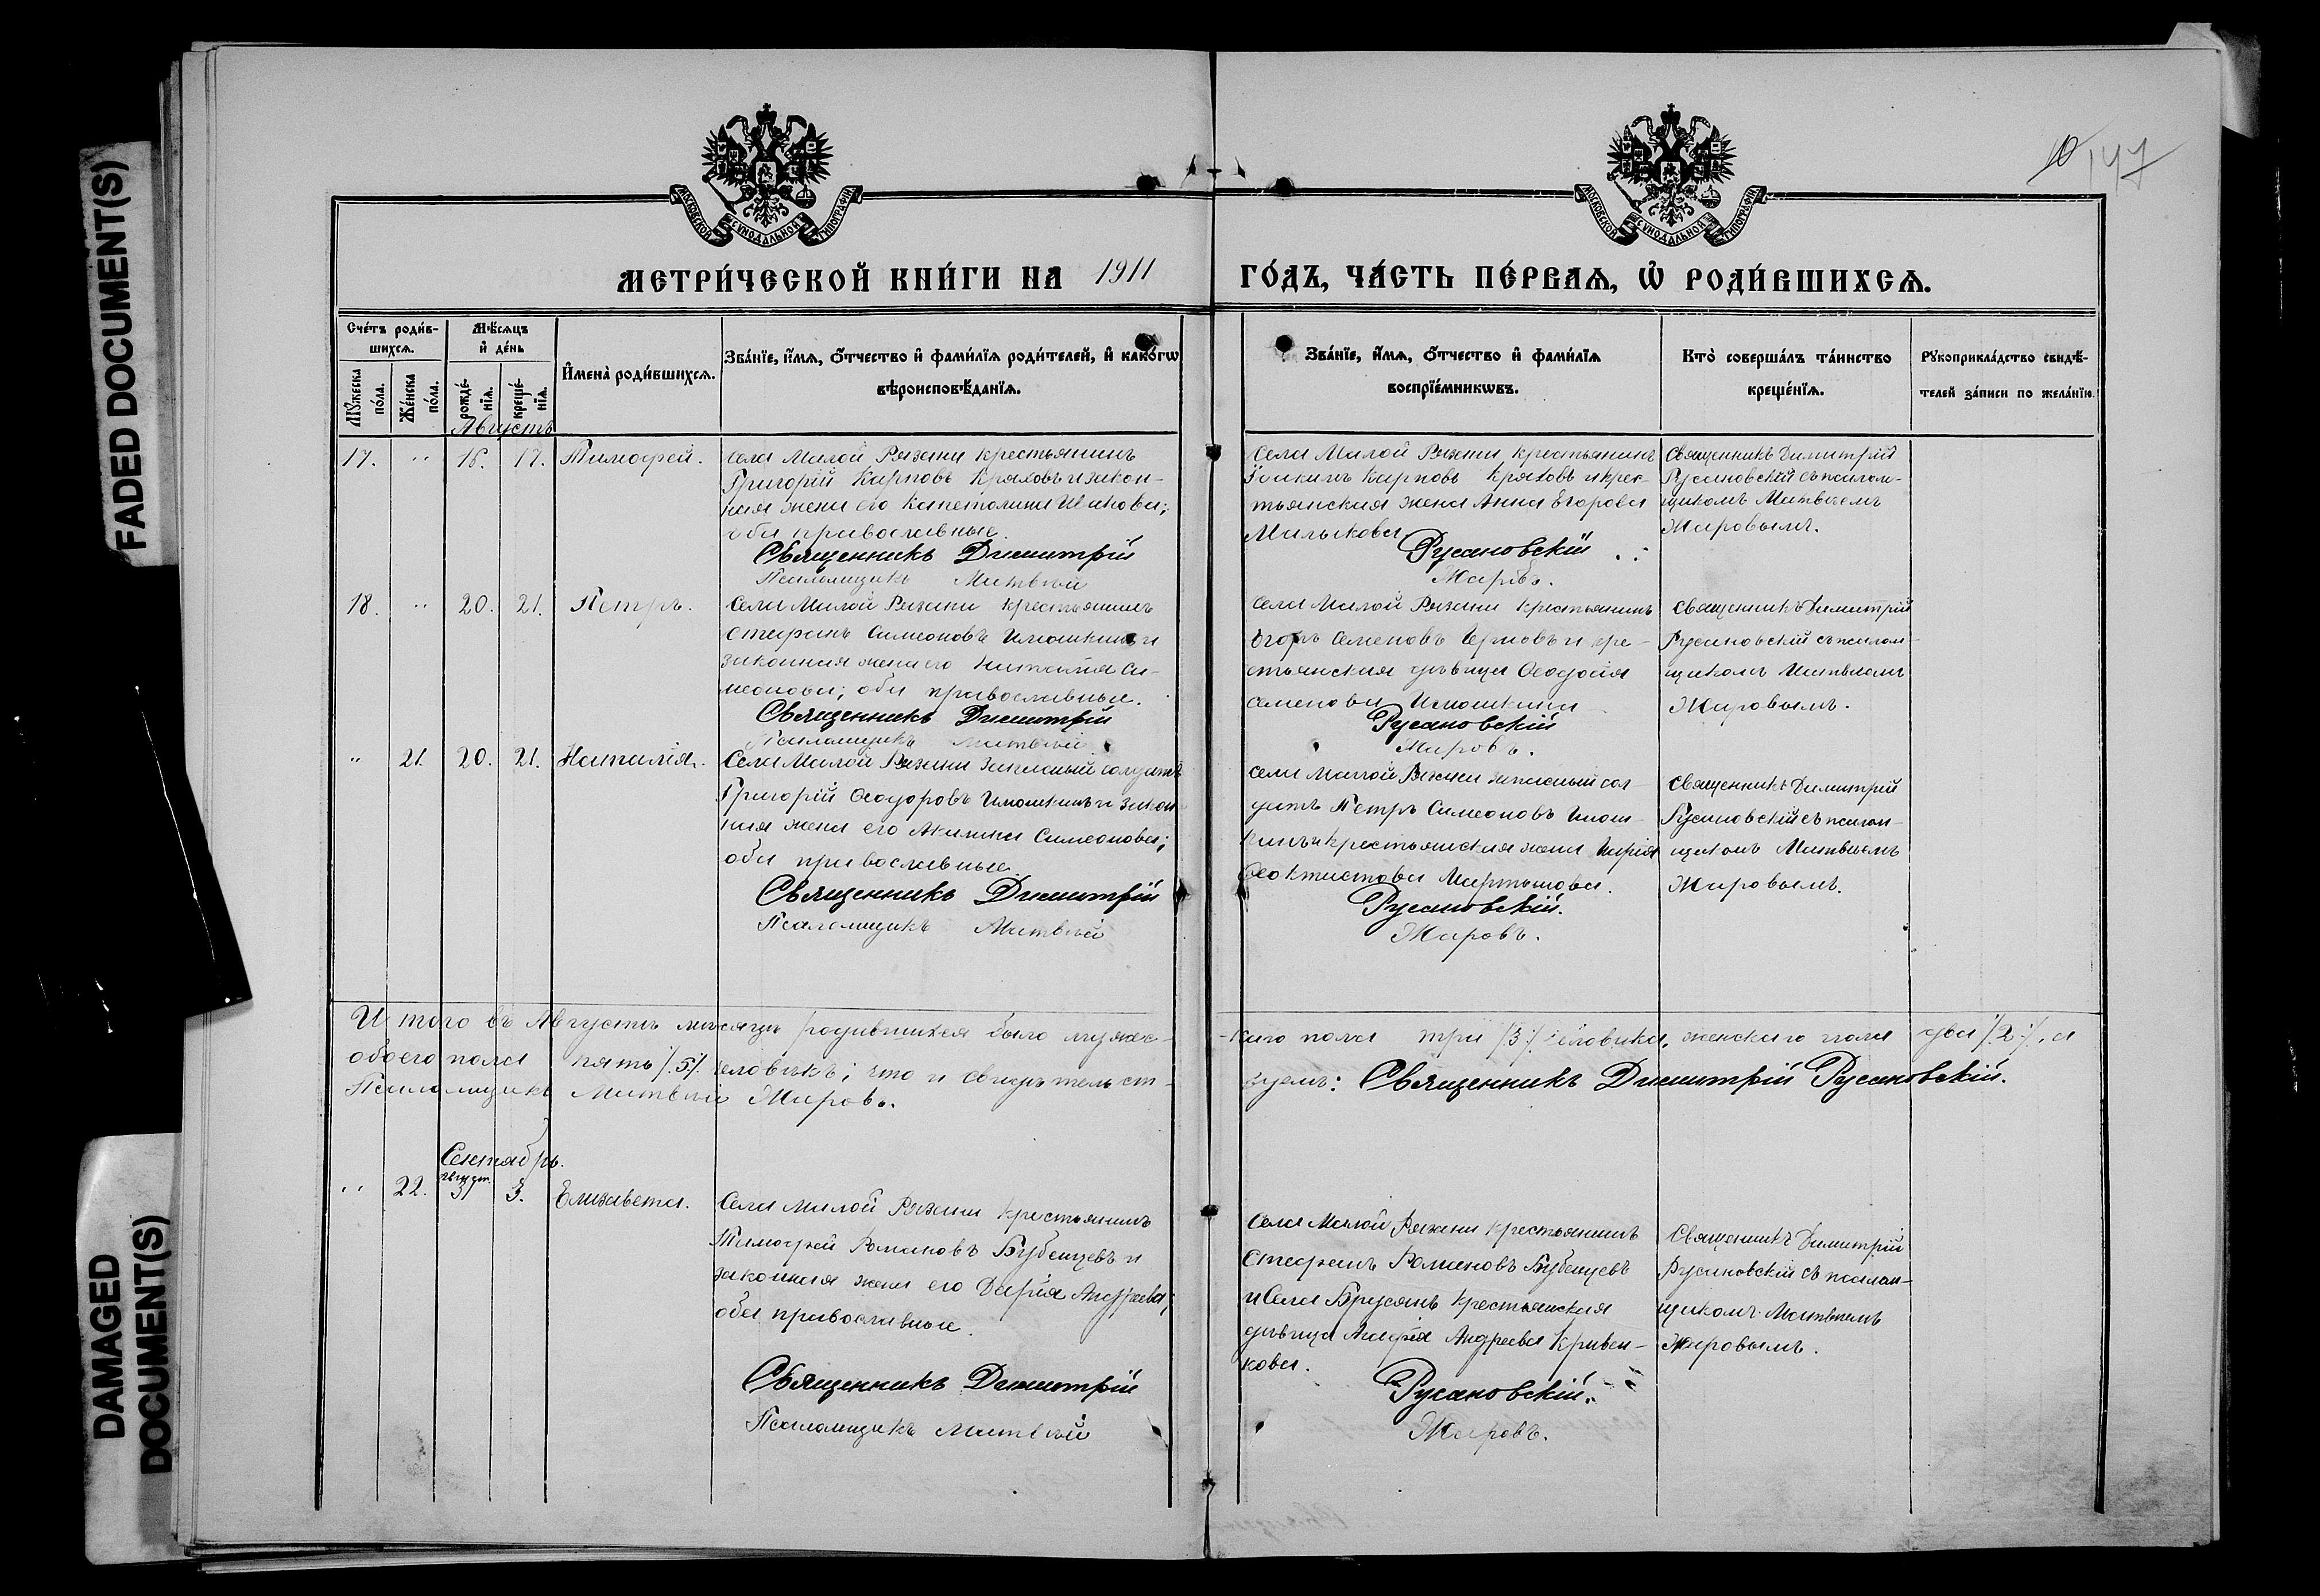 FADED DOCUMENT(S)
DAMAGED
DOCUMENT(S)
10 147
МОСКОВСКОЙ СѴНОДАЛЬНОЙ ТИПОГРАФІИ
МОСКОВСКОЙ СѴНОДАЛЬНОЙ ТИПОГРАФІИ
МЕТРИ́ЧЕСКОЙ КНИ́ГИ НА 1911 ГО́ДЪ, ЧА́СТЬ ПЕ́РВАѦ, Ѡ҆ РОДИ́ВШИХСѦ.
Сче́тъ роди́в-
шихсѧ.
Мꙋ́жеска по́ла.
Же́нска по́ла.
Мѣ́сѧцъ
и҆ де́нь
рожде́-
нїѧ.
креще́-
нїѧ.
И҆мена̀ роди́вшихсѧ.
Зва́нїе, и҆́мѧ, ѻ҆́тчество и҆ фами́лїѧ роди́телей, и҆ како́гѡ
вѣроисповѣ́данїѧ.
Зва́нїе, и҆́мѧ, ѻ҆́тчество и҆ фами́лїѧ
воспрїе́мникѡвъ.
Кто̀ соверша́лъ та́инство
креще́нїѧ.
Рꙋкоприкла́дство свидѣ́-
телей за́писи по жела́нїю.
Августъ
17. " 16. 17. Тимофей.
Села Малой Рязани крестьянинъ
Григорій Карповъ Кряковъ и закон-
ная жена его Капетолина Иванова;
оба православные.
Священникъ Димитрій Русановскій
Псаломщикъ Матвѣй Жаровъ.
Села Малой Рязани крестьянинъ
Іоакимъ Карповъ Кряковъ и крес-
тьянская жена Анна Егорова
Малыкова
Священникъ Димитрій
Русановскій съ псалом-
щикомъ Матвѣемъ
Жаровымъ.
18. " 20. 21. Петръ.
Села Малой Рязани крестьянинъ
Стефанъ Симеоновъ Илюшкинъ и
законная жена его Наталія Си-
меонова; оба православные.
Священникъ Димитрій Русановскій
Псаломщикъ Матвѣй Жаровъ.
Села Малой Рязани крестьянинъ
Егоръ Семеновъ и кре-
стьянская дѣвица Ѳеодосія
Семенова Илюшкина
Священникъ Димитрій
Русановскій съ псалом-
щикомъ Матвѣемъ
Жаровымъ.
" 21. 20. 21. Наталія.
Села Малой Рязани запасный солдатъ
Григорій Ѳеодоровъ Илюшкинъ и закон
ная жена его Акилина Симеонова;
оба православные.
Священникъ Димитрій Русановскій.
Псаломщикъ Матвѣй Жаровъ.
Села Малой Рязани запасный сол-
датъ Петръ Симеоновъ Илюш-
кинъ и крестьянская жена Марія
Ѳеоктистова Мартынова.
Священникъ Димитрій
Русановскій съ псалом-
щикомъ Матвѣемъ
Жаровымъ.
Итого въ Августѣ мѣсяцѣ родившихся было мужес-
-каго пола три /3/ человѣка, женскаго пола два /2/, а
обоего пола пять /5/ человѣкъ; что и свидѣтельст-
вуемъ: Священникъ Димитрій Русановскій.
Псаломщикъ Матвѣй Жаровъ.
Сентябрь.
" 22. Август. 31 3. Елизавета.
Села Малой Рязани крестьянинъ
Тимофей Романовъ Бубенцевъ и
законная жена его Дарія Андреева;
оба православные.
Священникъ Димитрій Русановскій.
Псаломщикъ Матвѣй Жаровъ.
Села Малой Рязани крестьянинъ
Стефанъ Романовъ Бубенцевъ
и села Брусянъ крестьянская
дѣвица Марія Андреева Кривен-
кова.
Священникъ Димитрій
Русановскій съ псалом-
щикомъ Матвѣемъ
Жаровымъ.